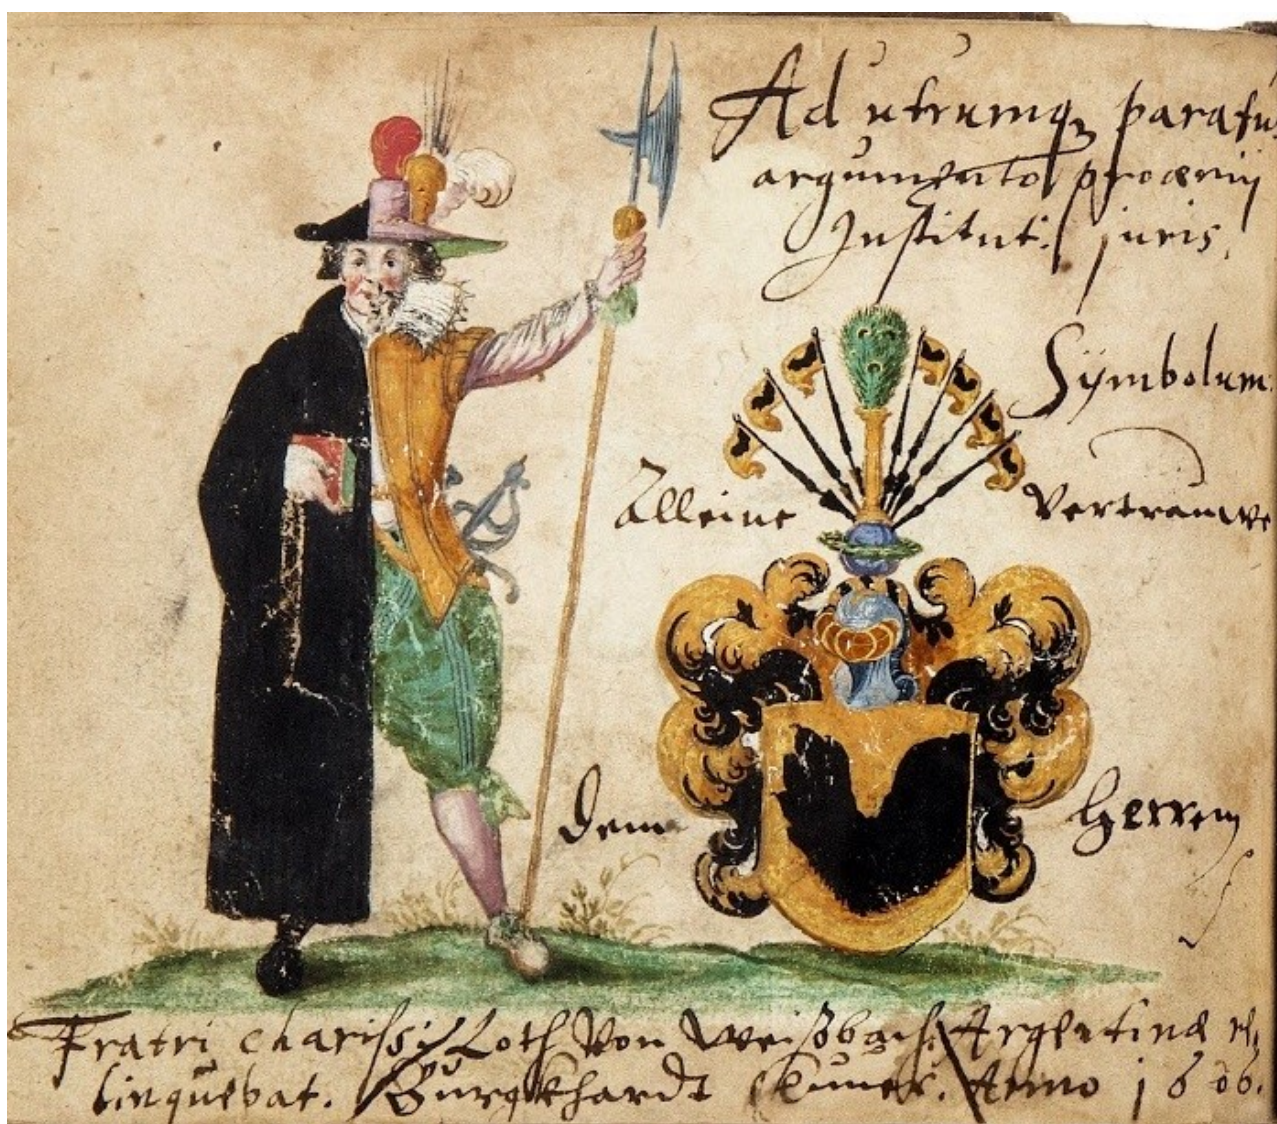 Ad utrumq₃ paratus
argumento prooemij
Institut: juris.
Symbolum:
Alleine Vertrauwe
dem Herren
Fratri charissi: Loth Von Weißbach Argentinæ re,
linquebat. Burgkhardt Anno 1606.